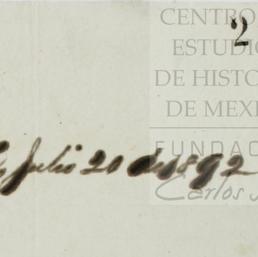 CENTRO
2
ESTUDIO
DE HISTOR
DE MEXI
FUNDAC
Carlos S
Julio 20 de 1892